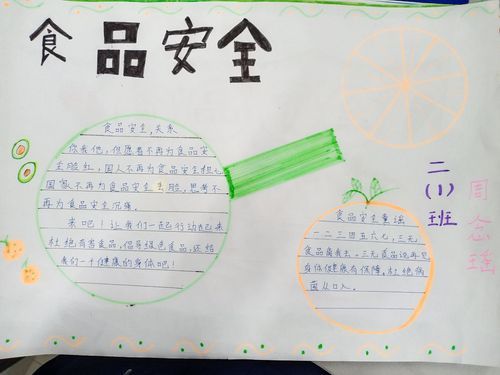 食品安全
食品安全,关系
你我他,但愿君不再为食品安
全脸红,国人不再为食品安全担心
国家不再为食品安全丢脸,思考不
再为食品安全沉痛。
来吧!让我们一起行动起来
杜绝有害食品,倡导绿色食品,还给
我们一个健康的身体吧!
食品安全童谣
一二三四五六七,三无
食品离我去。三无食品说再见
身体健康有保障。杜绝病
菌从口入。
二(1)班
周念瑶